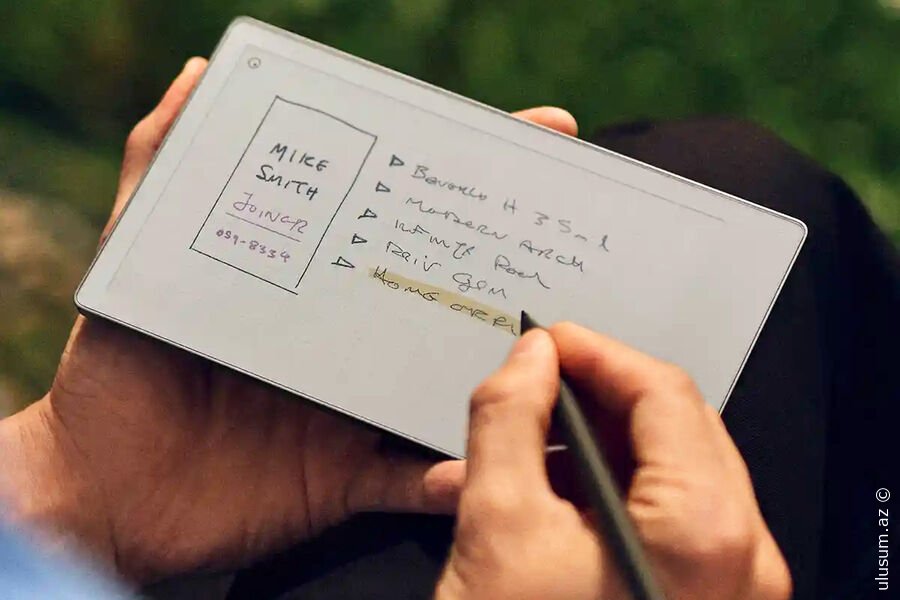 MIKE
SMITH
JOINER
059-8334
Beverly H 35ml
Modern ARCH
INFINITE Pool
Priv Gym
Home
ulusum.az ©